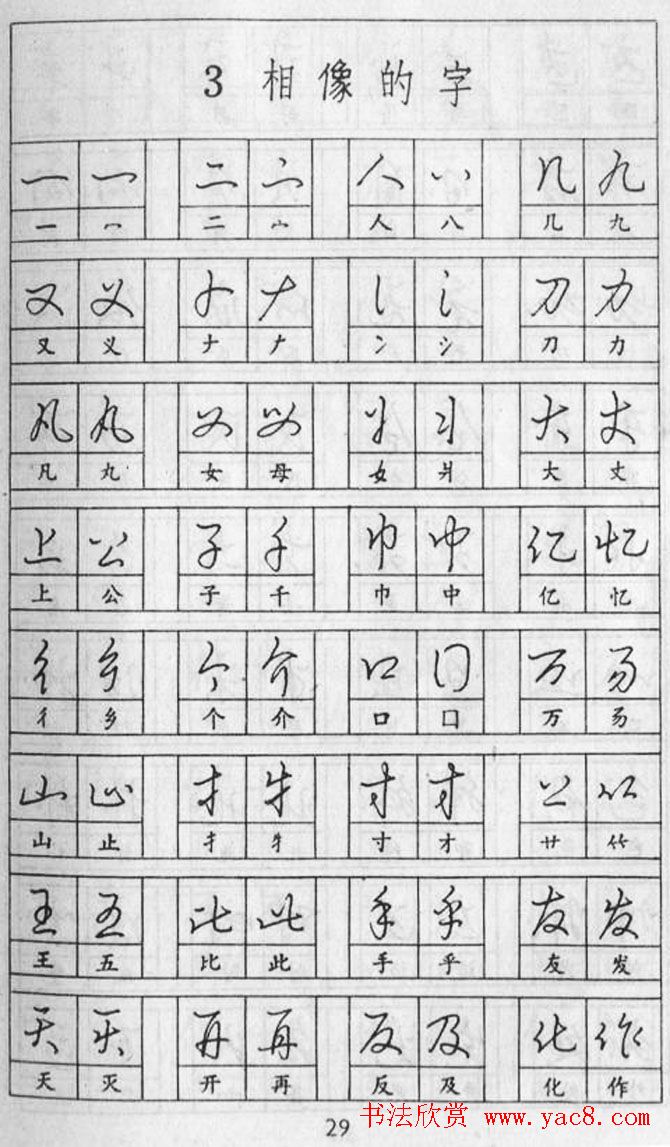 3 相像的字
一 一 二 亠 人 八 几 九
一 冖 二 亠 人 八 几 九
又 义 𠂇 ナ 冫 氵 刀 力
又 义 ナ 冫 氵 刀 力
凡 丸 女 母 女 爿 大 丈
凡 丸 女 母 女 丬 大 丈
上 公 子 千 巾 中 亿 忆
上 公 子 千 巾 中 亿 忆
彳 乡 个 介 口 囗 万 㐆
彳 乡 个 介 口 囗 万
山 止 扌 牜 寸 才 艹 竹
山 止 扌 牜 寸 才 廾 ⺮
王 五 比 此 手 乎 友 发
王 五 比 此 手 乎 友 发
天 灭 开 再 反 及 化 作
天 灭 开 再 反 及 化 作
书法欣赏 www.yac8.com
29